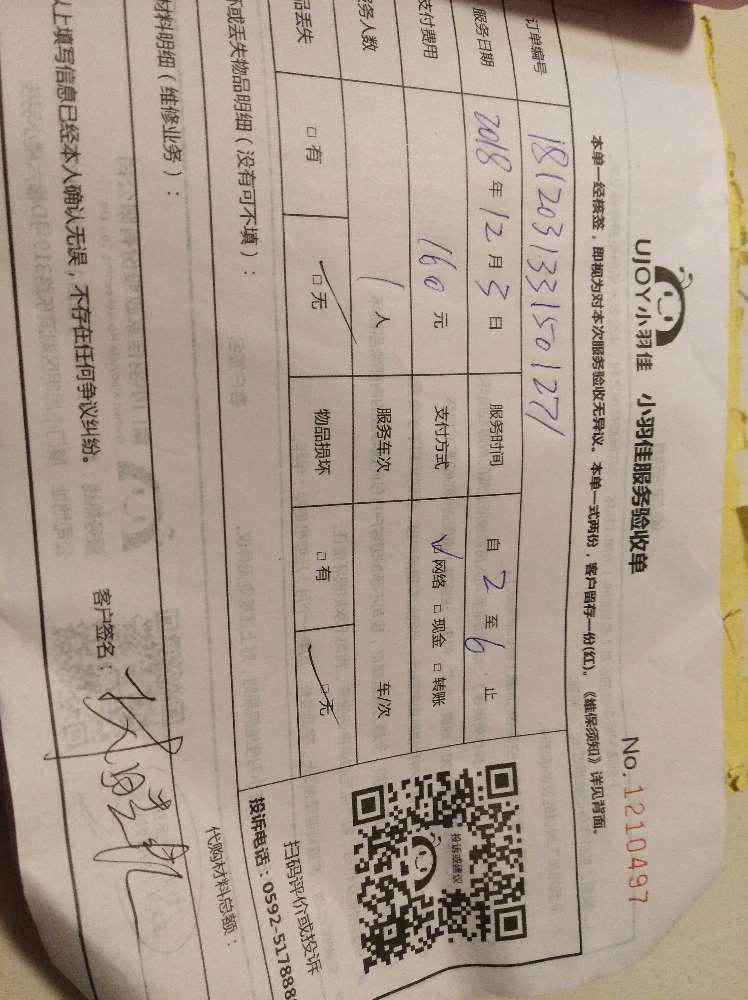 UJOY小羽佳 小羽佳服务验收单 No. 1210497
本单一经核签，即视为对本次服务验收无异议。本单一式两份，客户留存一份(红)。《维保须知》详见背面。
订单编号 1812031331501271
服务日期 2018 年 12 月 3 日 服务时间 自 2 至 6 止
支付费用 160 元 支付方式 网络 □ 现金 □ 转账
务人数 1 人 服务车次 车/次
品丢失 □ 有 □ 无 物品损坏 □ 有 □ 无
投诉或建议
扫码评价或投诉
投诉电话：0592-517888
或丢失物品明细（没有可不填）：
材料明细（维修业务）： 代购材料总额：
以上填写信息已经本人确认无误，不存在任何争议纠纷。 客户签名：